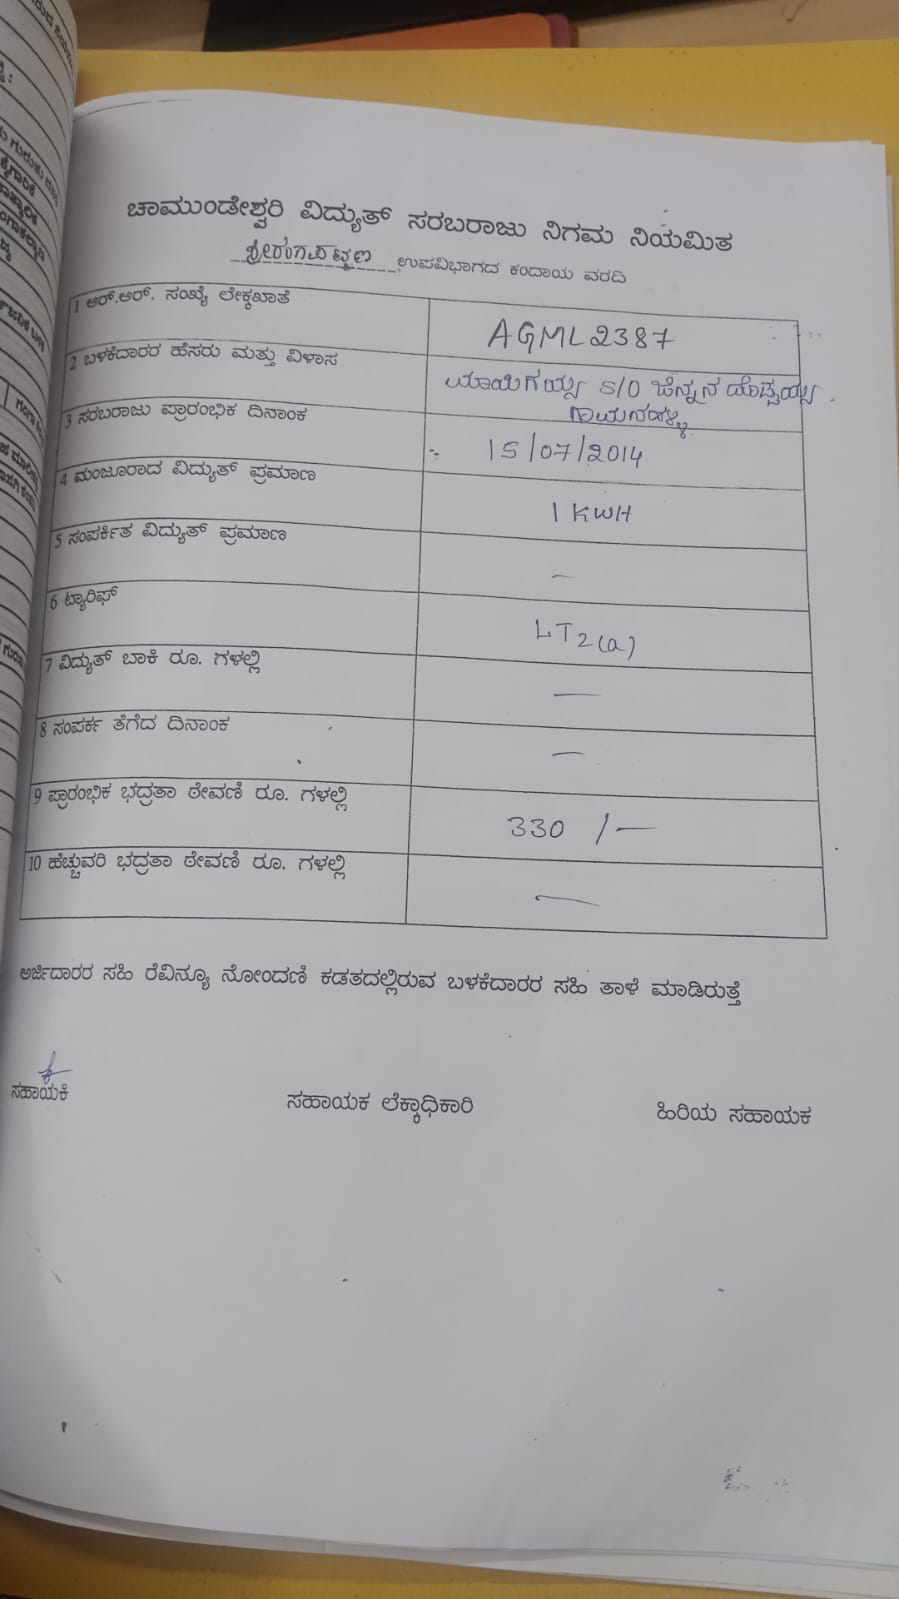 ಚಾಮುಂಡೇಶ್ವರಿ ವಿದ್ಯುತ್ ಸರಬರಾಜು ನಿಗಮ ನಿಯಮಿತ
ಶ್ರೀರಂಗಪಟ್ಟಣ ಉಪವಿಭಾಗದ ಕಂದಾಯ ವರದಿ
1 ಆರ್.ಆರ್. ಸಂಖ್ಯೆ ಲೇಕ್ಕಖಾತೆ AGML2387
2 ಬಳಕೆದಾರರ ಹೆಸರು ಮತ್ತು ವಿಳಾಸ S/O
3 ಸರಬರಾಜು ಪ್ರಾರಂಭಿಕ ದಿನಾಂಕ 15/07/2014
4 ಮಂಜೂರಾದ ವಿದ್ಯುತ್ ಪ್ರಮಾಣ 1 KWH
5 ಸಂಪರ್ಕಿತ ವಿದ್ಯುತ್ ಪ್ರಮಾಣ —
6 ಟ್ಯಾರಿಫ್ LT2(a)
7 ವಿದ್ಯುತ್ ಬಾಕಿ ರೂ. ಗಳಲ್ಲಿ —
8 ಸಂಪರ್ಕ ತೆಗೆದ ದಿನಾಂಕ —
9 ಪ್ರಾರಂಭಿಕ ಭದ್ರತಾ ಠೇವಣಿ ರೂ. ಗಳಲ್ಲಿ 330 /—
10 ಹೆಚ್ಚುವರಿ ಭದ್ರತಾ ಠೇವಣಿ ರೂ. ಗಳಲ್ಲಿ —
ಅರ್ಜಿದಾರರ ಸಹಿ ರೆವಿನ್ಯೂ ನೋಂದಣಿ ಕಡತದಲ್ಲಿರುವ ಬಳಕೆದಾರರ ಸಹಿ ತಾಳೆ ಮಾಡಿರುತ್ತೆ
ಸಹಾಯಕಿ ಸಹಾಯಕ ಲೆಕ್ಕಾಧಿಕಾರಿ ಹಿರಿಯ ಸಹಾಯಕ